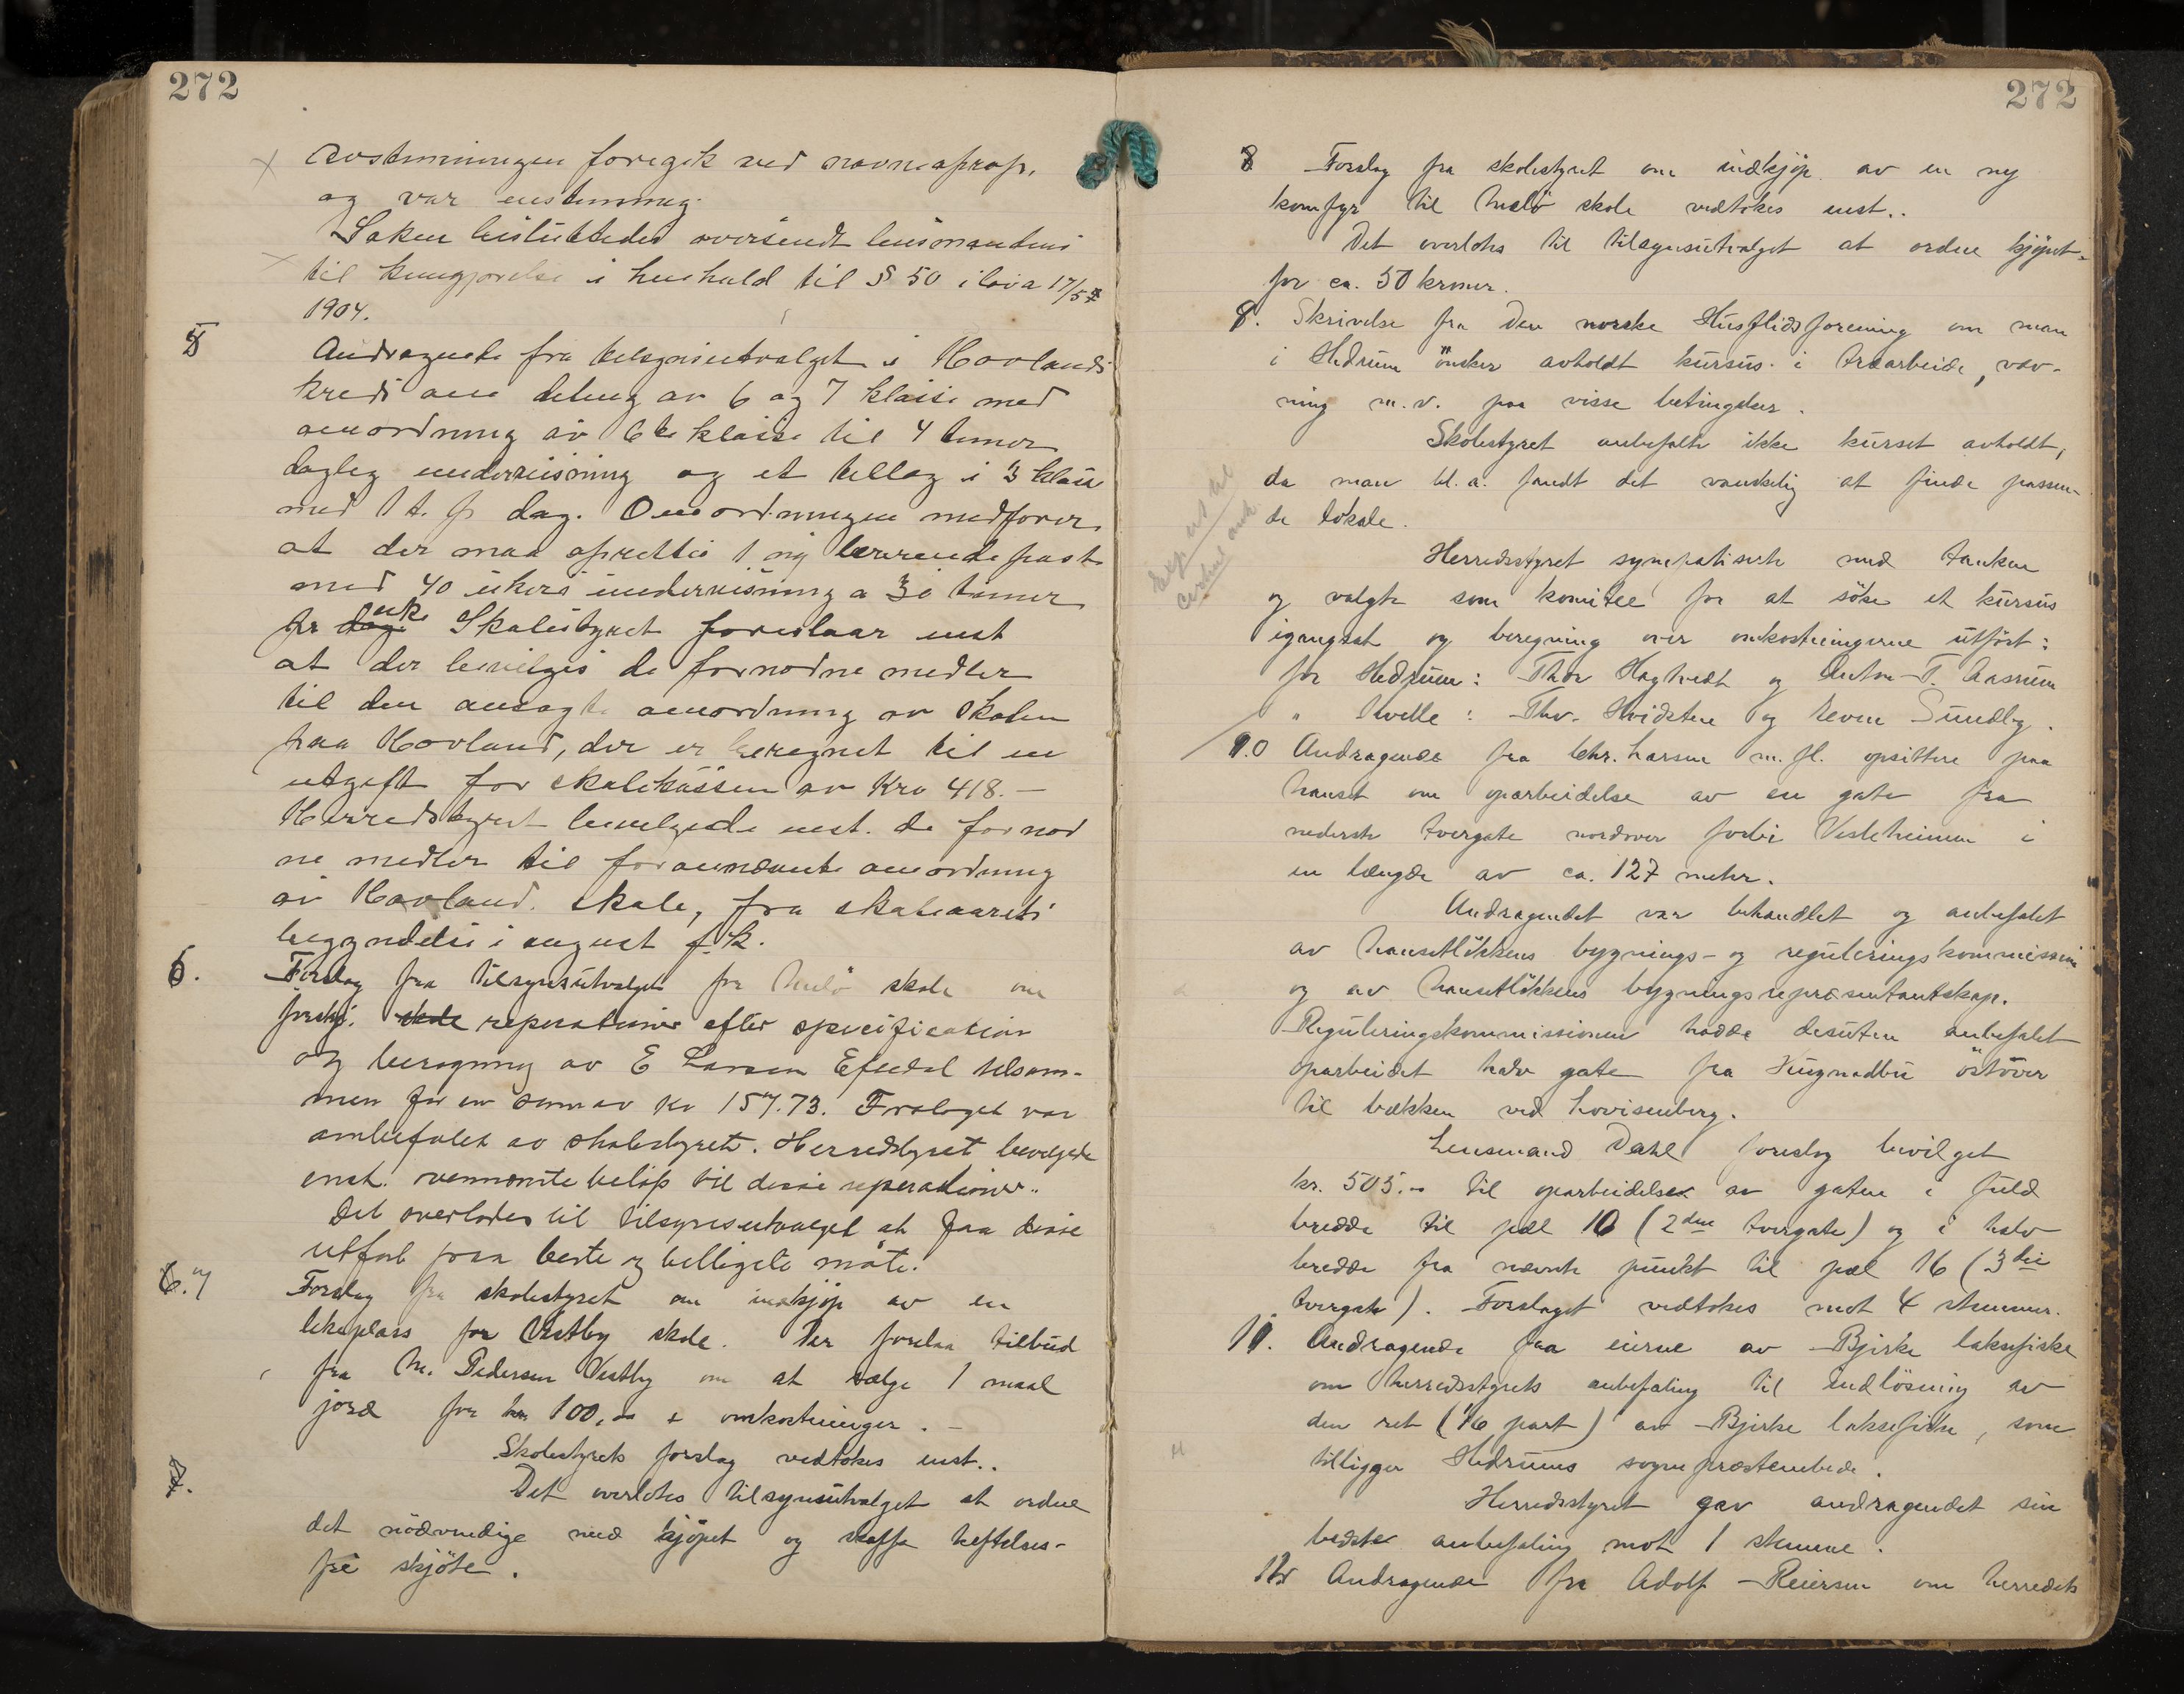 272
Avstemningen foregik ved navneoprop,
og var enstemmig.
Saken besluttedes oversendt lensmanden
til kungjørelse i henhold til § 50 i lov a 17/5
1904.
5 Andragende fra tilsynsutvalget i Hovlands
kreds om deling av 6 og 7 klasse med
omordning av 6te klasse til 4 timer
daglig undervisning og et tillæg i 3 klasse
med 1 t. pr dag. Omordningen medfører
at der maa oprettes 1 ny lærerinde post
med 40 ukers undervisning a 30 timer
pr uke Skolestyret foreslaar enst
at der bevilges de fornødne medler
til den ansøgte omordning av skolen
paa Hovland, der er beregnet til en
utgift for skolekassen av Kro 418.—
Herredstyret bevilgede enst. de fornød
ne medler til forannævnte omordning
av Hovland skole, fra skoleaarets
begyndelse i august f.k.
6. Forslag fra tilsynsutvalget for Melø skole om
forskj. reperationer efter specification
og beregning av E Larsen Efledal tilsam-
men for en sum av kr 157.73. Forslaget var
anbefalet av skolestyret. Herredstyret bevilgede
enst. nevnte beløp til disse reperationer..
Det overlodes til tilsynsutvalget at faa disse
utført paa beste og billigste måte.
7 Forslag fra skolestyret om indkjøp av en
lekeplass for Vestby skole. Der forelaa tilbud
fra M. Pedersen Vestby om at sælge 1 maal
jord for kr 100,00 + omkostninger. —
Skolestyrets forslag vedtokes enst..
Det overlotes tilsynsutvalget at ordne
det nödvendige med kjöpet og skaffe heftelses-
fri skjöte.
272
8 Forslag fra skolestyret om indkjöp av en ny
komfyr til Melö skole vedtokes enst..
Det overlotes til tilsynsutvalget at ordne kjöpet
for ca. 50 kroner.
9. Skrivelse fra Den norske Husflidsforening om man
i Hedrum önsker avholdt kursus i træarbeide, væv-
ning m.v. paa visse betingelser.
Skolestyret anbefalte ikke kurset avholdt,
da man bl.a. fandt det vanskelig at finde passen-
de lokale.
Herredsstyret sympatiserte med tanken
og valgte som komitee for at söke et kursus
igangsat og beregning over omkostningerne utfört:
for Hedrum: Thor Hagtvedt og Anton T. Aasrum
" Kvelle: Thv. Hvidsten og Even Sundby.
10 Andragende fra Chr. Larsen m.fl. opsittere paa
Nanset om oparbeidelse av en gate fra
nederste tvergate nordover forbi Vesleheimen i
en længde av ca. 127 meter.
Andragendet var behandlet og anbefalet
av Nansetlökkens bygnings- og reguleringskommission
og av Nansetlökkens bygningsrepræsentantskap.
Reguleringskommissionen hadde desuten anbefalet
oparbeidet halv gate fra Hugnadbu östover
til bækken ved Lovisenberg.
Lensmand Dahl foreslog bevilget
kr. 505.- til oparbeidelse av gaten i fuld
bredde til pæl 10 (2den tvergate) og i halv
bredde fra nævnte punkt til pæl 16 (3die
tvergate). Forslaget vedtokes mot 4 stemmer.
11. Andragende fra eierne av Bjerke laksefiske
om herredsstyrets anbefaling til indlösning av
den ret (1/6 part) av Bjerke laksefiske, som
tilligger Hedrums sogneprestembede.
Herredsstyret gav andragendet sin
bedste anbefaling mot 1 stemme.
12 Andragende fra Adolf Reiersen om herredets